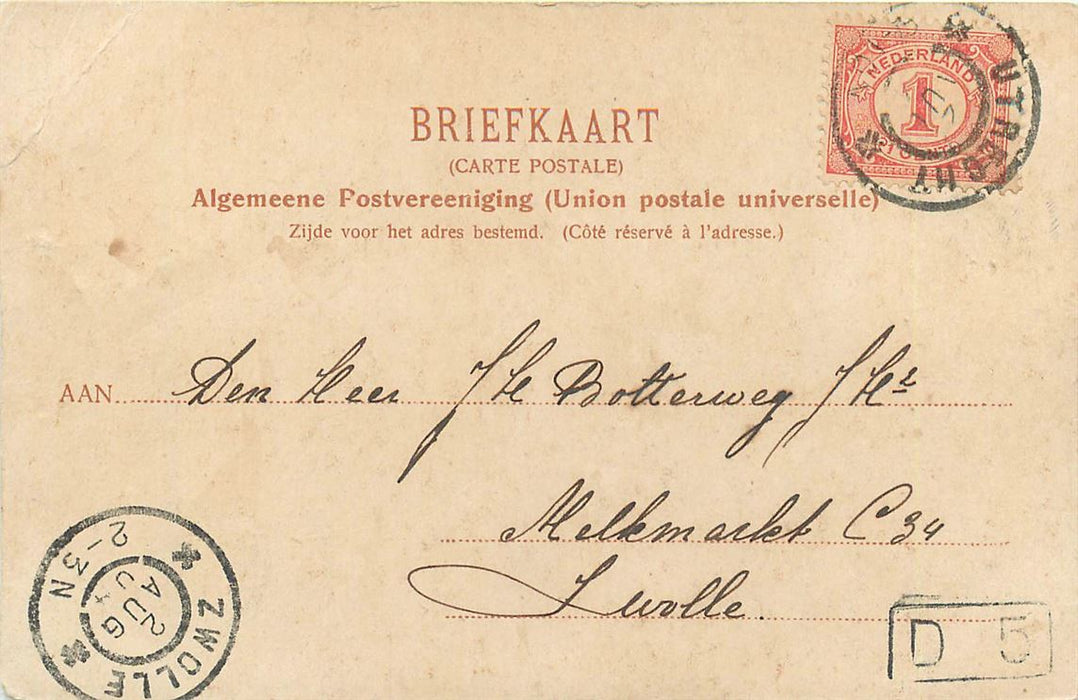 BRIEFKAART
(CARTE POSTALE)
Algemeene Postvereeniging (Union postale universelle)
Zijde voor het adres bestemd. (Côté réservé à l'adresse.)
NEDERLAND
1
UTRECHT
AAN Den Heer J H Botterweg JHz
Melkmarkt C 34
Zwolle.
ZWOLLE
2-3N
2 AUG
D 5